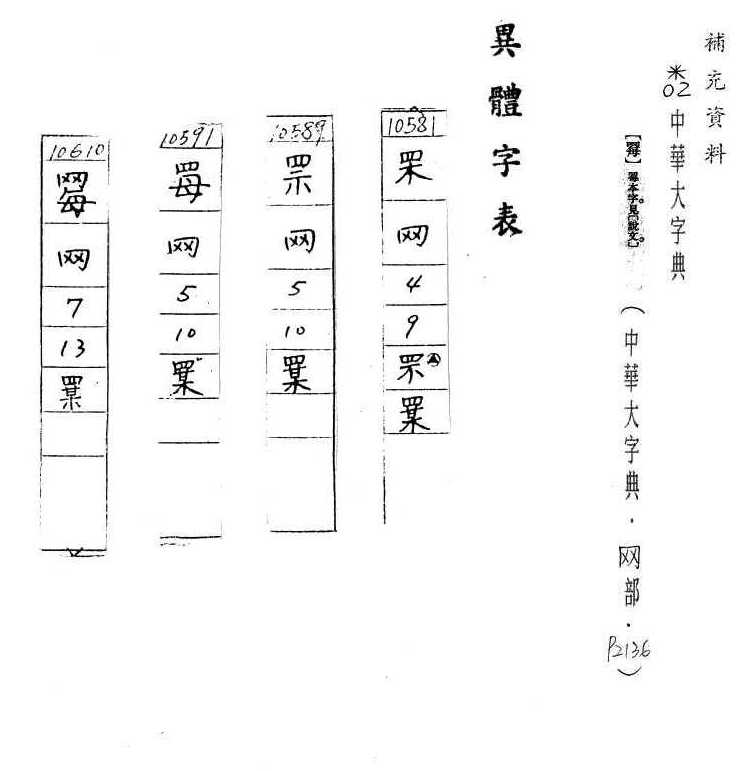 補充資料
※02中華大字典
本字。見〔說文〕。
(中華大字典．网部．P2136)
異體字表
10581
网
4
9
10589
网
5
10
10591
网
5
10
10610
网
7
13